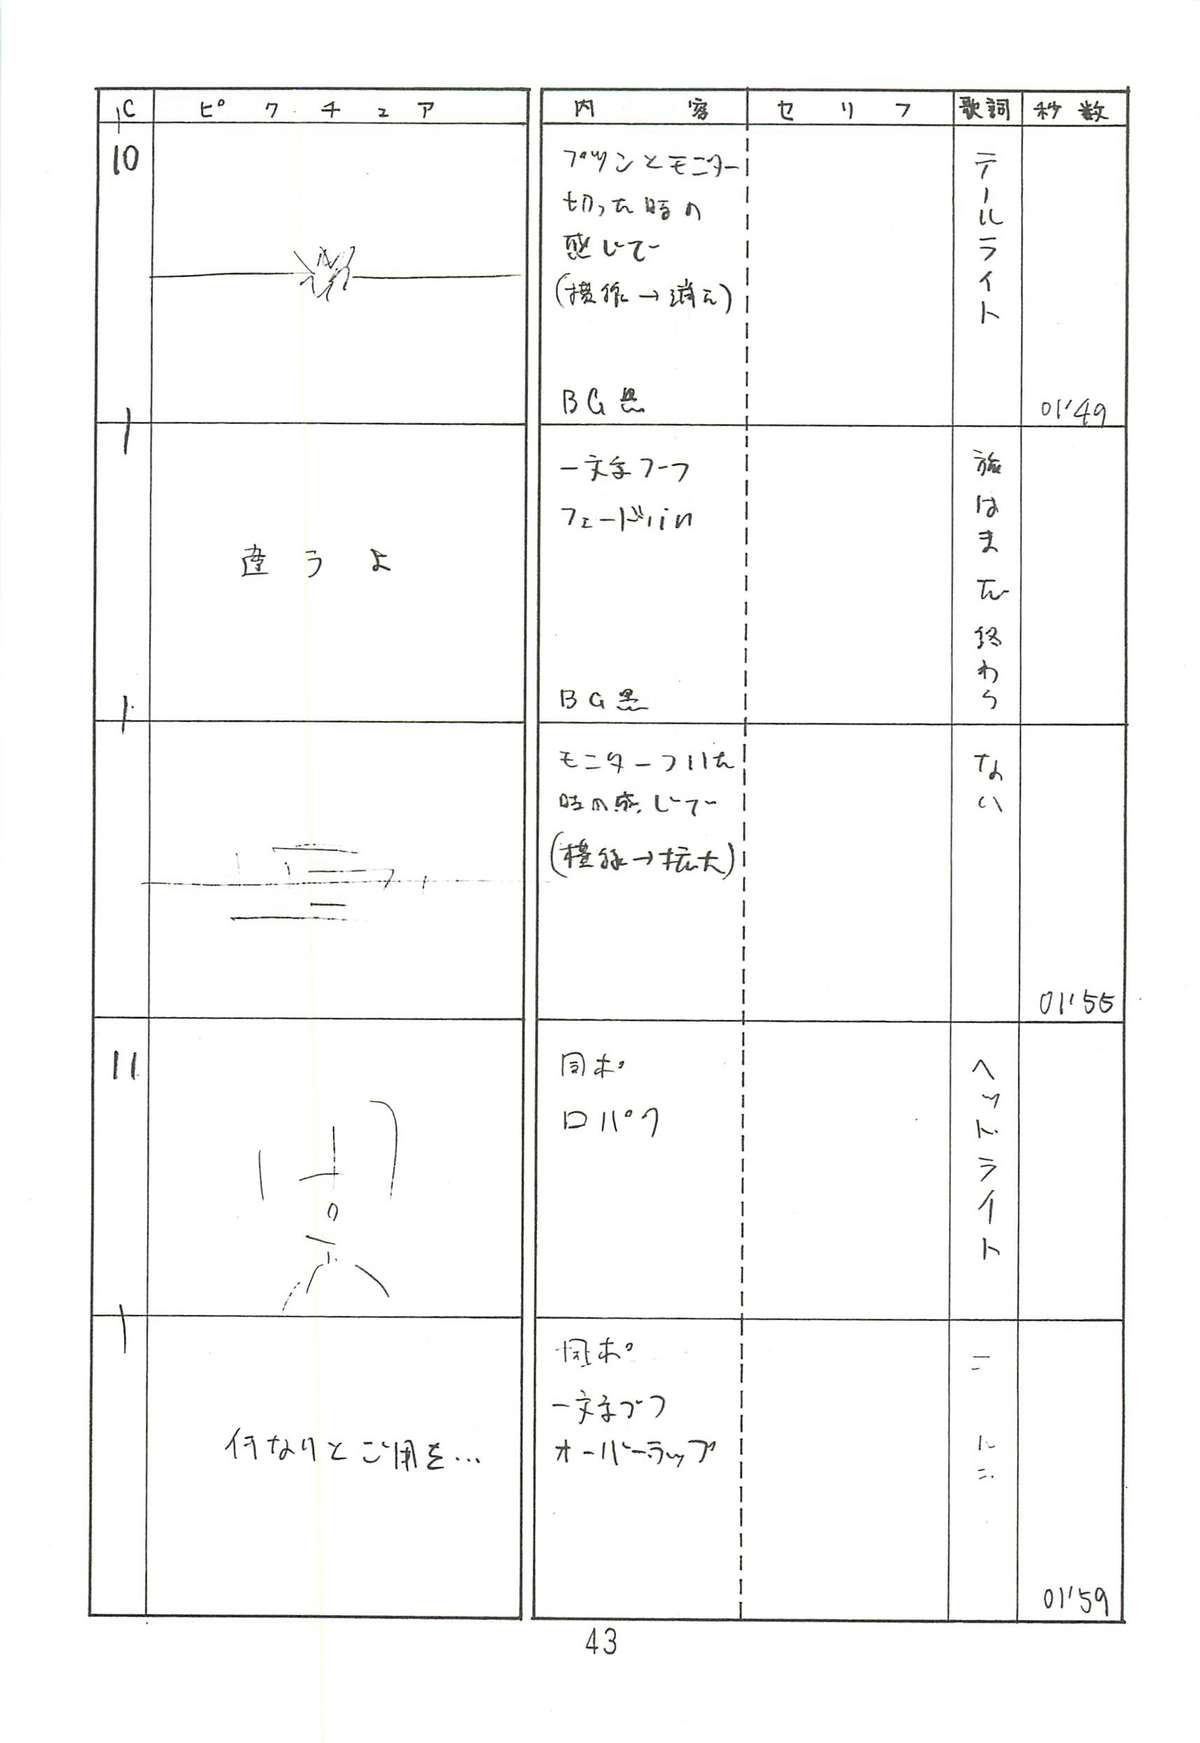 C ピクチュア 内容 セリフ 歌詞 秒数
10
プツンとモニター
切った時の
感じで
(横線→消え)
BG黒
テールライト
01'49
違うよ
一文字づつ
フェードin
BG黒
旅はまだ終わら
モニターついた
時の感じで
(横線→拡大)
ない
01'55
11
同ポ
口パク
ヘッドライト
何なりとご用を…
同ポ
一文字づつ
オーバーラップ
01'59
43